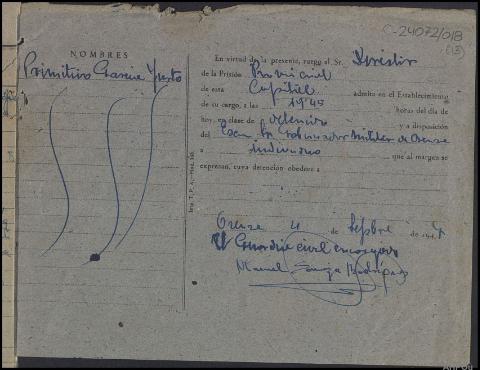 C-24072/018
(13)
NOMBRES
Primitivo Garcia Justo
En virtud de la presente, ruego al Sr. Director
de la Prisión Provincial
de esta Capital admita en el Establecimiento
de su cargo, a las 19'45 horas del día de
hoy, en clase de detenido y a disposición
del Excmo Sr Gobernador Militar de Orense
a individuo que al margen se
expresan, cuya detención obedece a
Orense 4 de Sepbre de 194
El Guardia civil encargado
Manuel Rodríguez
Imp. T. P. A.—Mod. 150